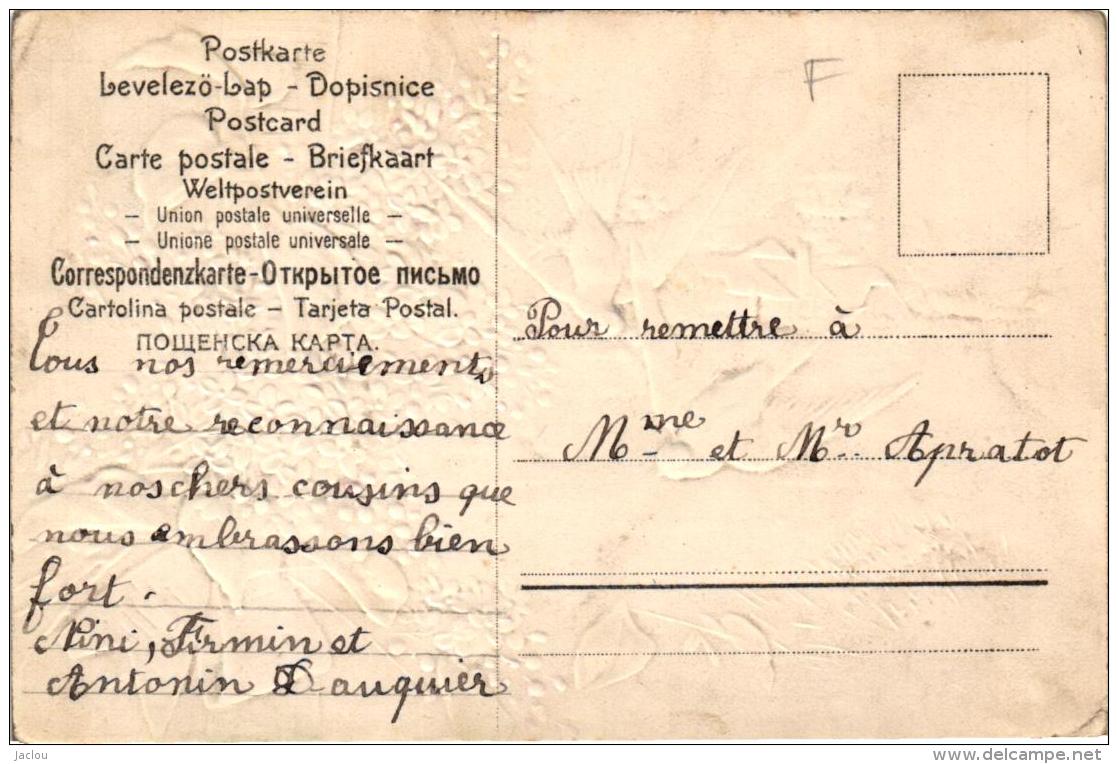 Postkarte
Levelező-Lap - Dopisnice
Postcard
Carte postale - Briefkaart
Weltpostverein
— Union postale universelle —
— Unione postale universale —
Correspondenzkarte-Открытое письмо
Cartolina postale — Tarjeta Postal.
ПОЩЕНСКА КАРТА.
Tous nos remerciements
et notre reconnaissance
à nos chers cousins que
nous embrassons bien
fort.
Nini, Firmin et
Antonin Dauquier
F
Pour remettre à
Mme et Mr. Apratot
Jaclou
www.delcampe.net